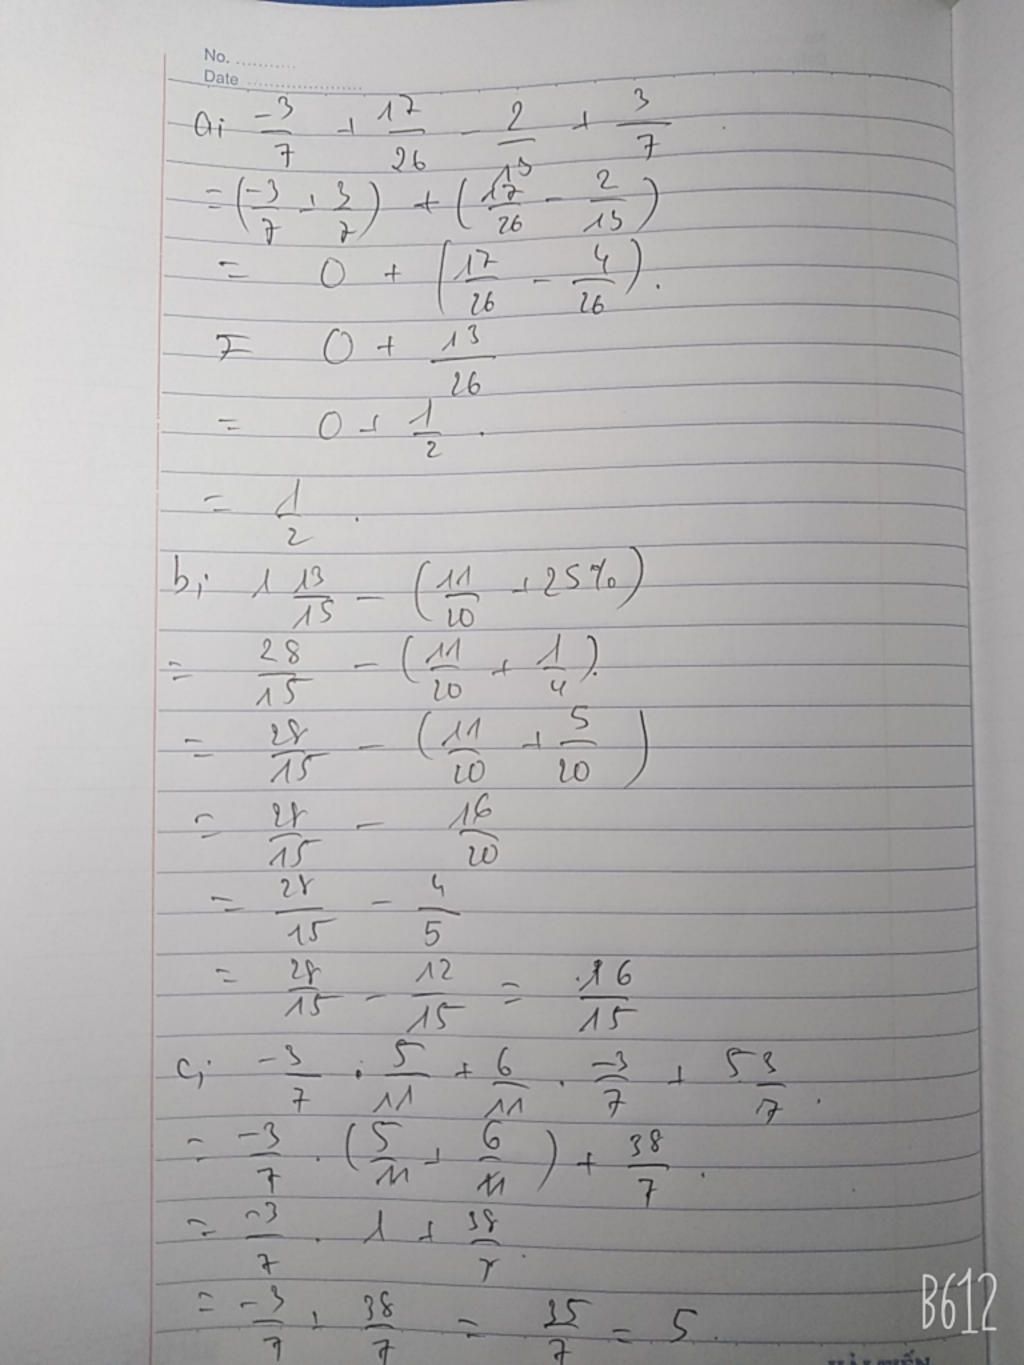 No. ...........
Date ......................
a; -3/7 + 17/26 - 2/13 + 3/7
= (-3/7 + 3/7) + (17/26 - 2/13)
= 0 + (17/26 - 4/26).
= 0 + 13/26
= 0 + 1/2.
= 1/2.
b; 1 13/15 - (11/20 + 25%)
= 28/15 - (11/20 + 1/4).
= 28/15 - (11/20 + 5/20)
= 28/15 - 16/20
= 28/15 - 4/5
= 28/15 - 12/15 = 16/15
c; -3/7 . 5/11 + 6/11 . -3/7 + 5 3/7.
= -3/7 . (5/11 + 6/11) + 38/7.
= -3/7 . 1 + 38/7.
= -3/7 + 38/7 = 35/7 = 5.
B612